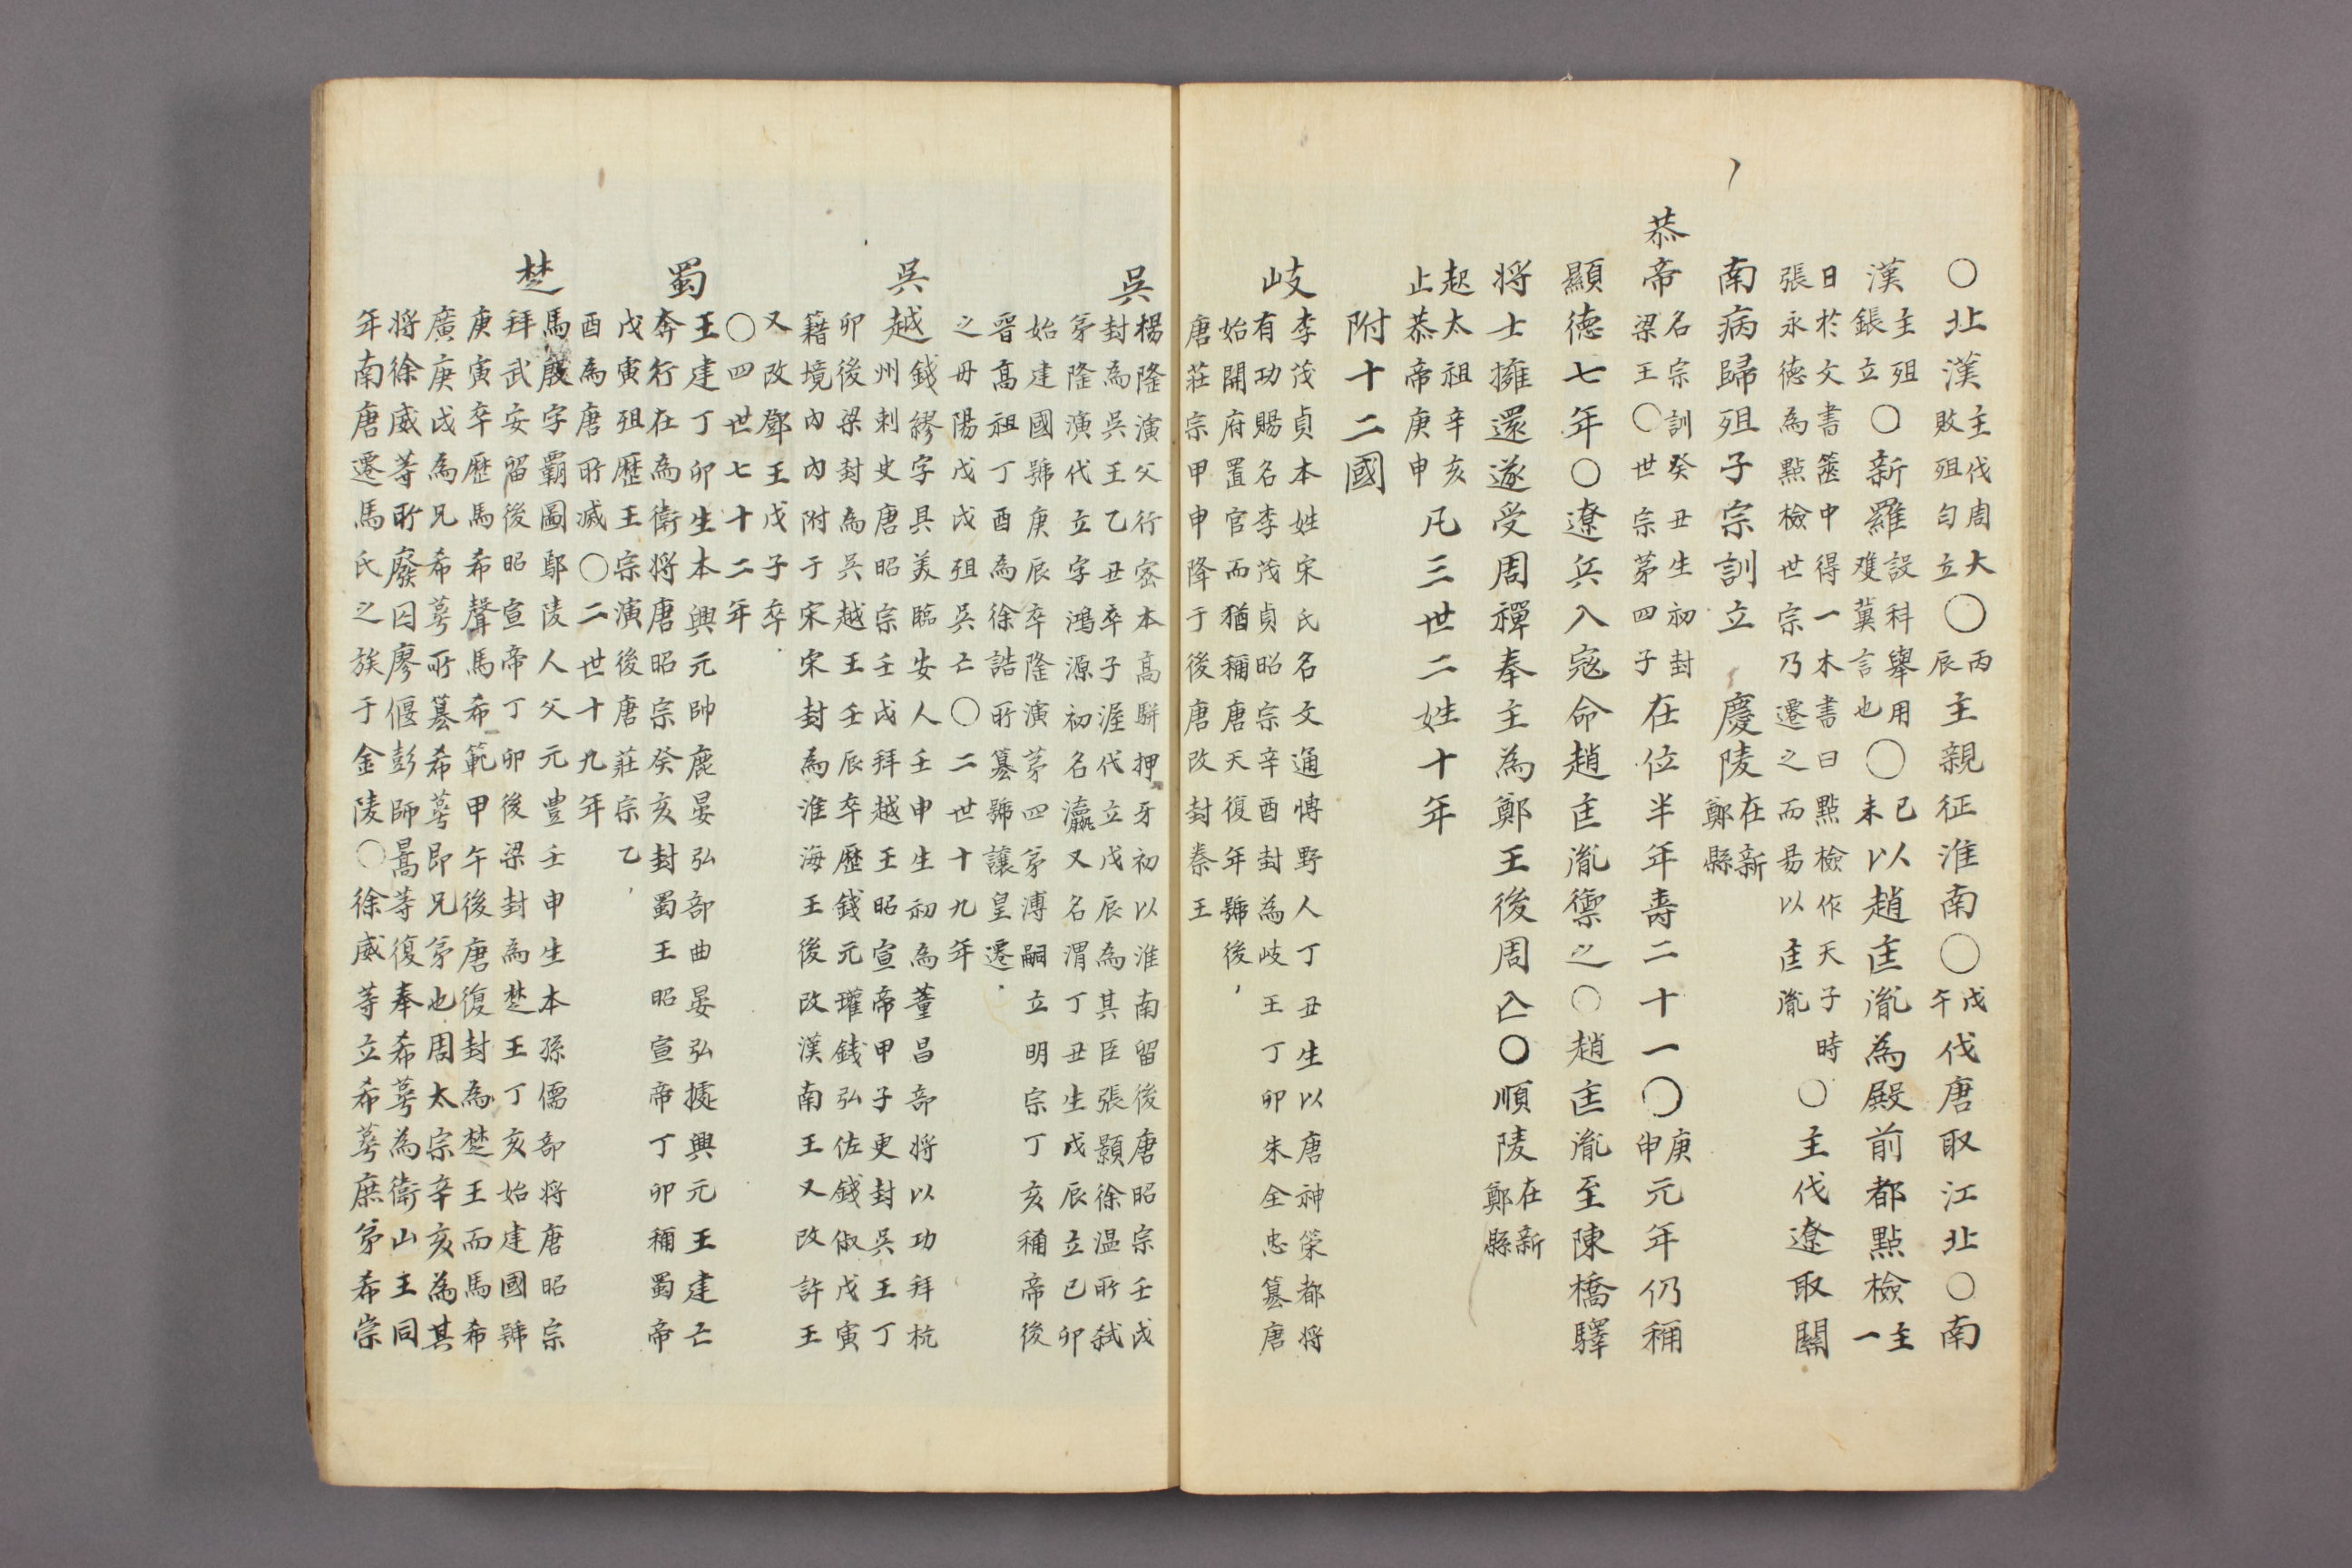 ○北漢主伐周大敗殂匀立○丙辰主親征淮南○戊午伐唐取江北○南
漢主殂鋹立○新羅設科舉用雙冀言也○己未以趙匡胤為殿前都點檢主一
日於文書篋中得一木書曰點檢作天子時張永德為點檢世宗乃遷之而易以匡胤○主伐遼取關
南病歸殂子宗訓立 慶陵在新鄭縣
恭帝名宗訓癸丑生初封梁王○世宗苐四子在位半年壽二十一○庚申元年仍稱
顯德七年○遼兵入寇命趙匡胤禦之○趙匡胤至陳橋驛
将士擁還遂受周禪奉主為鄭王後周亾○順陵在新鄭縣
起太祖辛亥止恭帝庚申凡三世二姓十年
附十二國
岐
李茂貞本姓宋氏名文通愽野人丁丑生以唐神策都将
有功賜名李茂貞昭宗辛酉封為岐王丁卯朱全忠簒唐
始開府置官而猶稱唐天復年號後
唐莊宗甲申降于後唐改封秦王
吳
楊隆演父行密本高駢押牙初以淮南留後唐昭宗壬戌
封為吳王乙丑卒子渥代立戊辰為其臣張顥徐温所弑
苐隆演代立字鴻源初名瀛又名渭丁丑生戊辰立己卯
始建國號庚辰卒隆演苐四苐溥嗣立明宗丁亥稱帝後
晋高祖丁酉為徐誥所簒號讓皇遷
之丹陽戊戌殂吳亡○二世十九年
吳越
錢鏐字具美臨安人壬申生初為董昌部将以功拜杭
州刺史唐昭宗壬戌拜越王昭宣帝甲子更封吳王丁
卯後梁封為吳越王壬辰卒歷錢元瓘錢弘佐錢俶戊寅
籍境內內附于宋宋封為淮海王後改漢南王又改許王
又改鄧王戊子卒
○四世七十二年
蜀
王建丁卯生本興元帥鹿晏弘部曲晏弘據興元王建亡
奔行在為衛将唐昭宗癸亥封蜀王昭宣帝丁卯稱蜀帝
戊寅殂歷王宗演後唐莊宗乙
酉為唐所滅○二世十九年
楚
馬殷字覇圖鄢陵人父元豊壬申生本孫儒部将唐昭宗
拜武安留後昭宣帝丁卯後梁封為楚王丁亥始建國號
庚寅卒歷馬希聲馬希範甲午後唐復封為楚王而馬希
廣庚戌為兄希萼所簒希萼即兄苐也周太宗辛亥為其
将徐威等所廢囚廖偃彭師暠等復奉希萼為衛山主同
年南唐遷馬氏之族于金陵○徐威等立希萼庶苐希崇